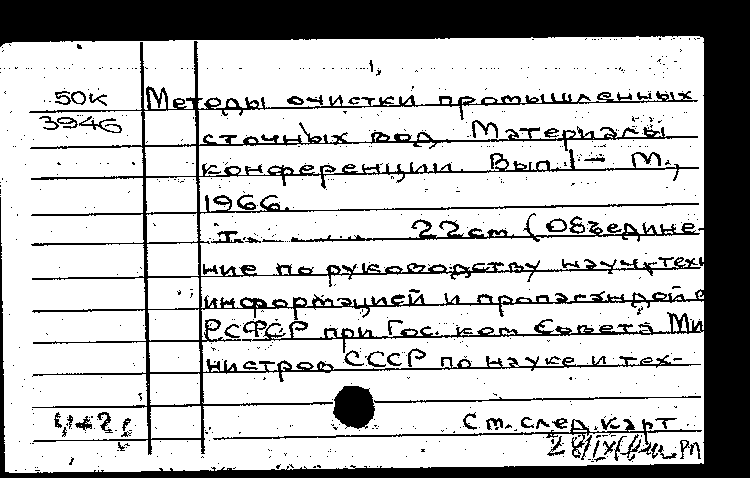 1,
50К
3946
Методы очистки промышленных
сточных вод. Материалы
конференции. Вып. 1 – М.,
1966.
Т. 22 cm. (Объедине-
ние по руководству науч.-техн
информацией и пропагандой в
РСФСР при Гос. ком Совета Ми
нистров СССР по науке и тех-
См. след. карт
28/IX РП